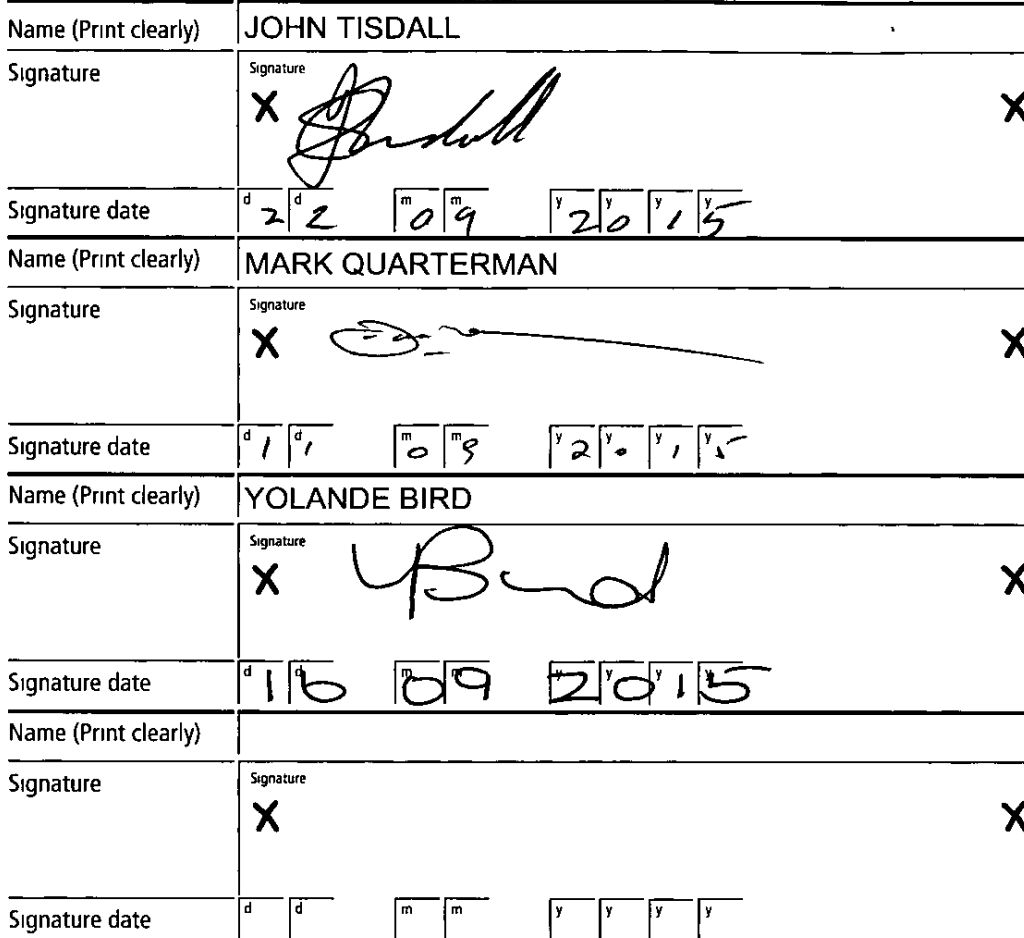 Name (Print clearly) JOHN TISDALL
Signature Signature
X X
Signature date d 2 d 2 m 0 m 9 y 2 y 0 y 1 y 5
Name (Print clearly) MARK QUARTERMAN
Signature Signature
X X
Signature date d 1 d 1 m 0 m 9 y 2 y 0 y 1 y 5
Name (Print clearly) YOLANDE BIRD
Signature Signature
X YBird X
Signature date d 1 d 6 m 0 m 9 y 2 y 0 y 1 y 5
Name (Print clearly)
Signature Signature
X X
Signature date d d m m y y y y